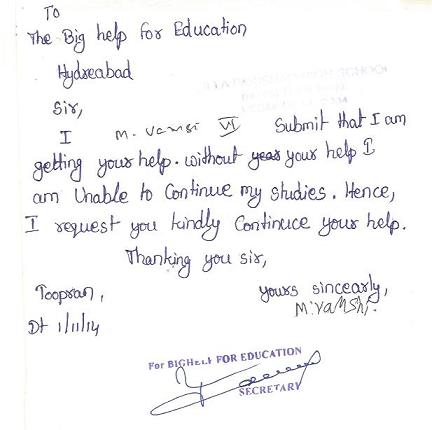 To
The Big help for Education
Hydreabad
Sir,
I M. Vamsi VI Submit that I am
getting your help. without your help I
am Unable to Continue my studies. Hence,
I request you kindly Continuce your help.
Thanking you sir,
Toopran,
yours sincearly,
M. Vamshi.
Dt 1/11/14
For BIGHELP FOR EDUCATION
SECRETARY